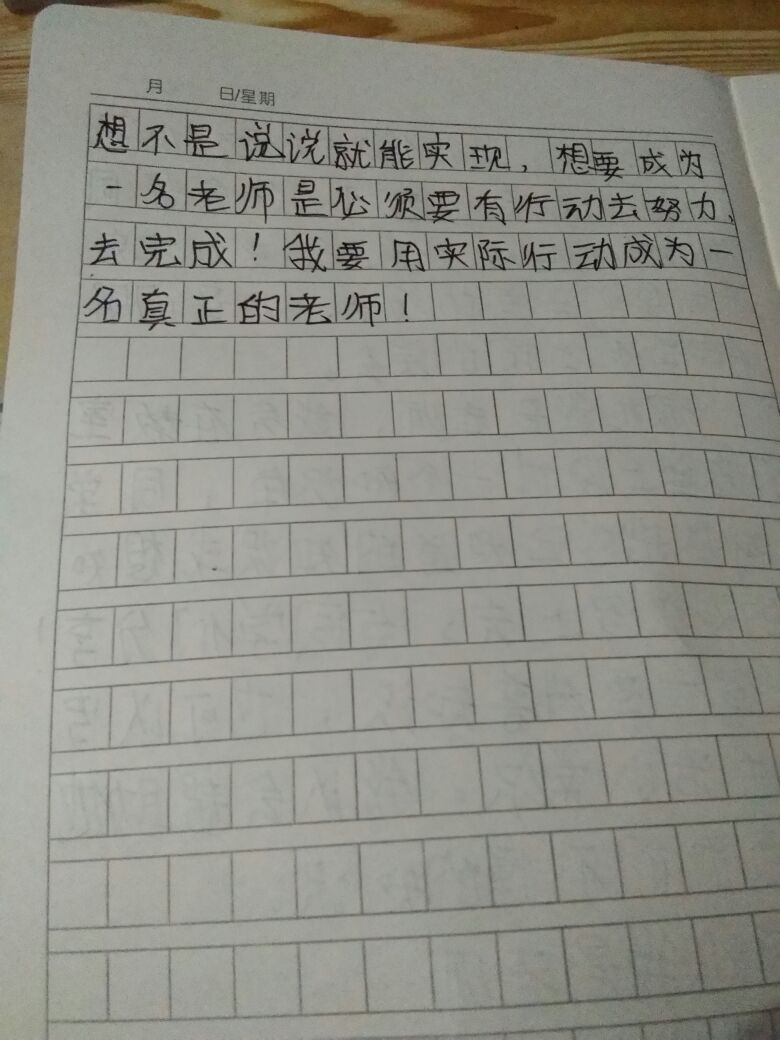 月 日/星期
想不是说说就能实现，想要成为
一名老师是必须要有行动去努力，
去完成！我要用实际行动成为一
名真正的老师！